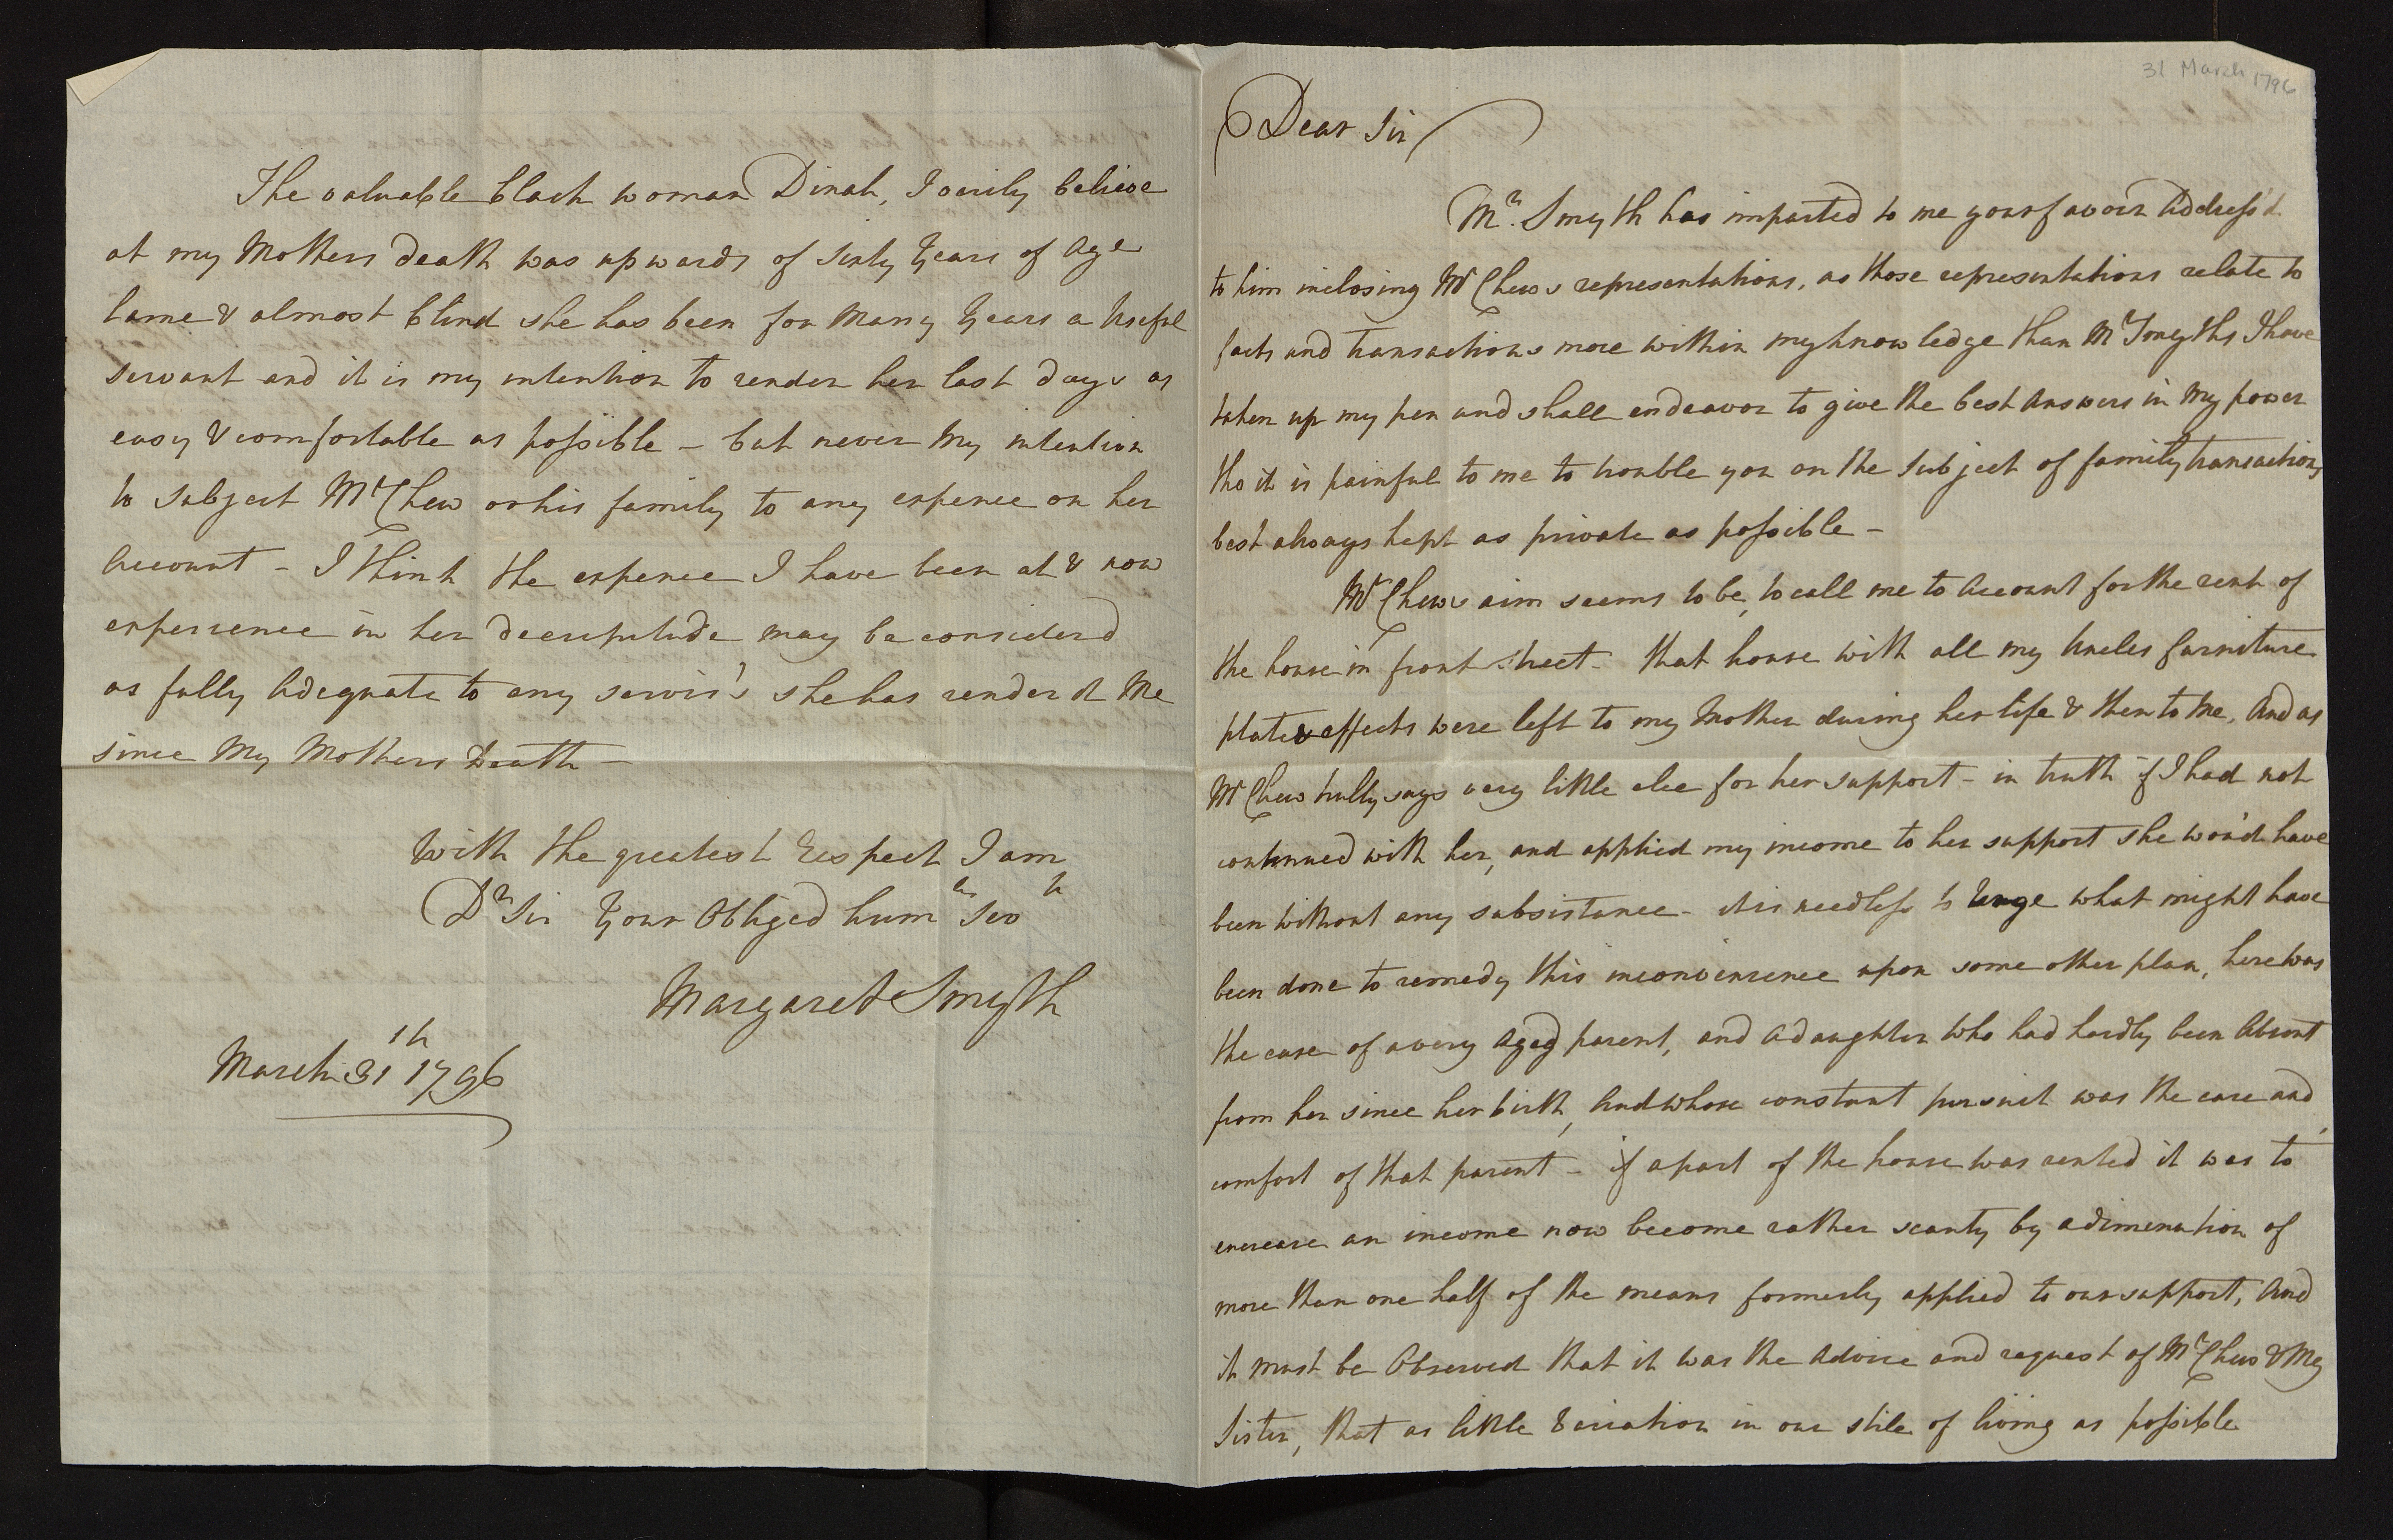 31 March 1796
Dear Sir
Mr. Smyth has imparted to me your favour Address'd
to him inclosing Mr Chews representations, as those representations relate to
facts and transactions more within my knowledge than Mr Smyths I have
taken up my pen and shall endeavor to give the best Answers in My power
tho it is painful to me to trouble you on the Subject of family transactions
best always kept as private as possible –
Mr Chews aim seems to be, to call me to Account for the rent of
the house in front street – that house with all my Uncles furniture
plate & effects were left to my Mother during her life & then to Me, And as
Mr Chew trully says very little else for her support – in truth if I had not
continued with her, and applied my income to her support she wou'd have
been without any subsistance – it is needless to Urge what might have
been done to remedy this inconvenience upon some other plan, here was
the case of a very Aged parent, and a daughter who had hardly been Absent
from her since her birth, And whose constant pursuit was the care and
comfort of that parent – if a part of the house was rented it was to
encrease an income now become rather scanty by a dimenution of
more than one half of the means formerly applied to our support, And
it must be Observed that it was the Advice and request of Mr Chew & My
Sister, that as little Variation in our stile of living as possible
The valuable black woman Dinah, I verily believe
at my Mothers death was upwards of sixty Years of Age
lame & almost blind she has been for Many Years a Useful
servant and it is my intention to render her last days as
easy & comfortable as possible – but never My intention
to subject Mr Chew or his family to any expence on her
Account – I think the expence I have been at & now
experience in her decripitude may be considerd
as fully Adequate to any servis's she has render'd Me
since My Mothers Death –
With the greatest Respect I am
Dr Sir Your Obliged humle Servt
Margaret Smyth
March 31th 1796